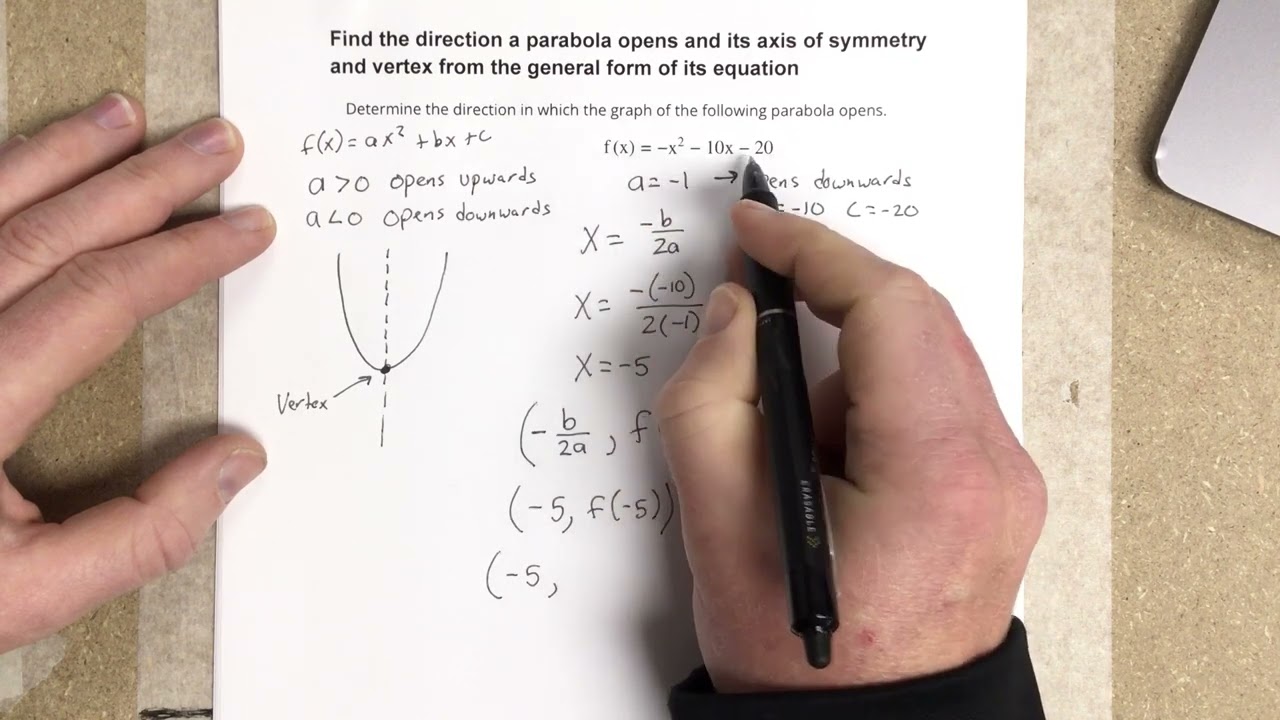 Find the direction a parabola opens and its axis of symmetry
and vertex from the general form of its equation
Determine the direction in which the graph of the following parabola opens.
f(x) = ax² + bx + c
f(x) = −x² − 10x − 20
a > 0 opens upwards
a = -1 → downwards
a < 0 opens downwards
= -10 c = -20
x = -b/2a
x = -(-10)/2(-1)
x = -5
Vertex
(-b/2a, f
(-5, f(-5))
(-5,
ERASABLE